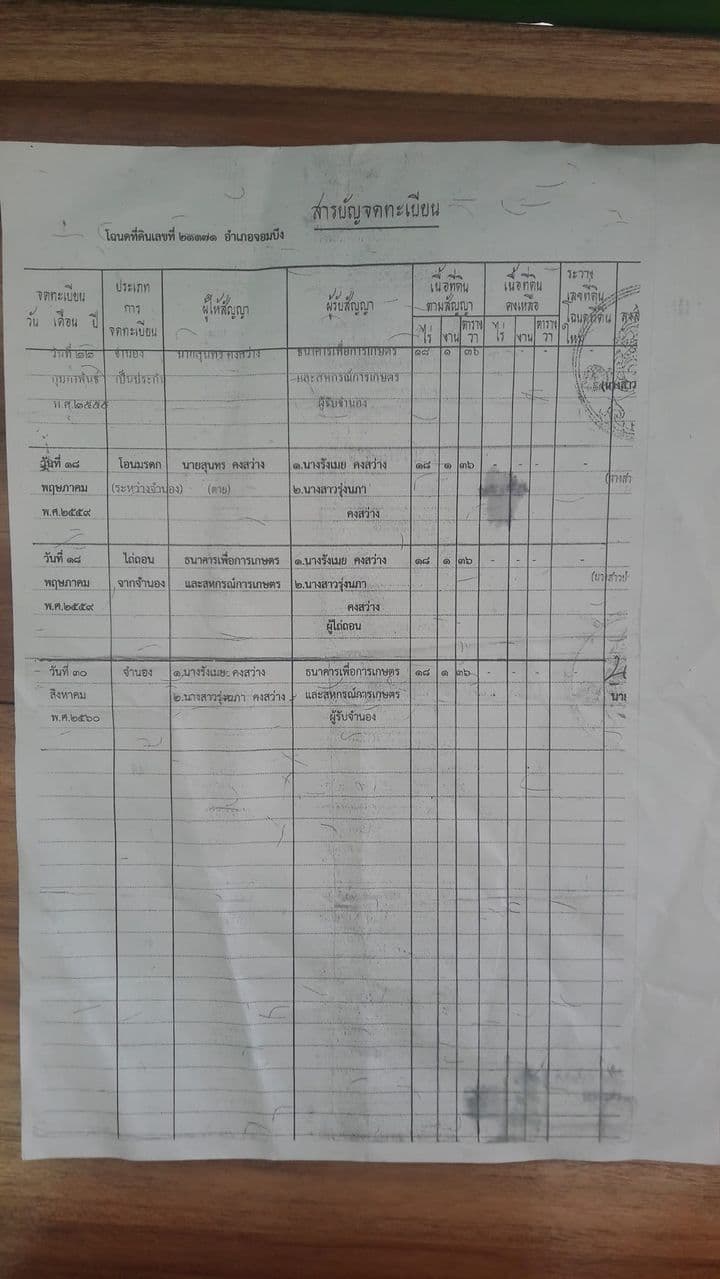 สารบัญจดทะเบียน
โฉนดที่ดินเลขที่ ๒๑๑๗๑ อำเภอจอมบึง
จดทะเบียน วัน เดือน ปี
ประเภท การ จดทะเบียน
ผู้ให้สัญญา
ผู้รับสัญญา
เนื้อที่ดิน ตามสัญญา
ไร่ งาน ตาราง วา
เนื้อที่ดิน คงเหลือ
ไร่ งาน ตาราง วา
ระวาง เลขที่ดิน โฉนดที่ดิน ใหม่
วันที่ ๒๒ จำนอง นายสุนทร คงสว่าง ธนาคารเพื่อการเกษตร ๑๘ ๑ ๓๖ - - - -
กุมภาพันธ์ เป็นประกัน และสหกรณ์การเกษตร
พ.ศ.๒๕๕๕ ผู้รับจำนอง
วันที่ ๑๘ โอนมรดก นายสุนทร คงสว่าง ๑.นางรังเมย คงสว่าง ๑๘ ๑ ๓๖ - - - -
พฤษภาคม (ระหว่างจำนอง) (ตาย) ๒.นางสาวรุ่งนภา
พ.ศ.๒๕๕๙ คงสว่าง
วันที่ ๑๘ ไถ่ถอน ธนาคารเพื่อการเกษตร ๑.นางรังเมย คงสว่าง ๑๘ ๑ ๓๖ - - - -
พฤษภาคม จากจำนอง และสหกรณ์การเกษตร ๒.นางสาวรุ่งนภา
พ.ศ.๒๕๕๙ คงสว่าง
ผู้ไถ่ถอน
วันที่ ๓๐ จำนอง ๑.นางรังเมย คงสว่าง ธนาคารเพื่อการเกษตร ๑๘ ๑ ๓๖ - - - -
สิงหาคม ๒.นางสาวรุ่งนภา คงสว่าง และสหกรณ์การเกษตร
พ.ศ.๒๕๖๐ ผู้รับจำนอง